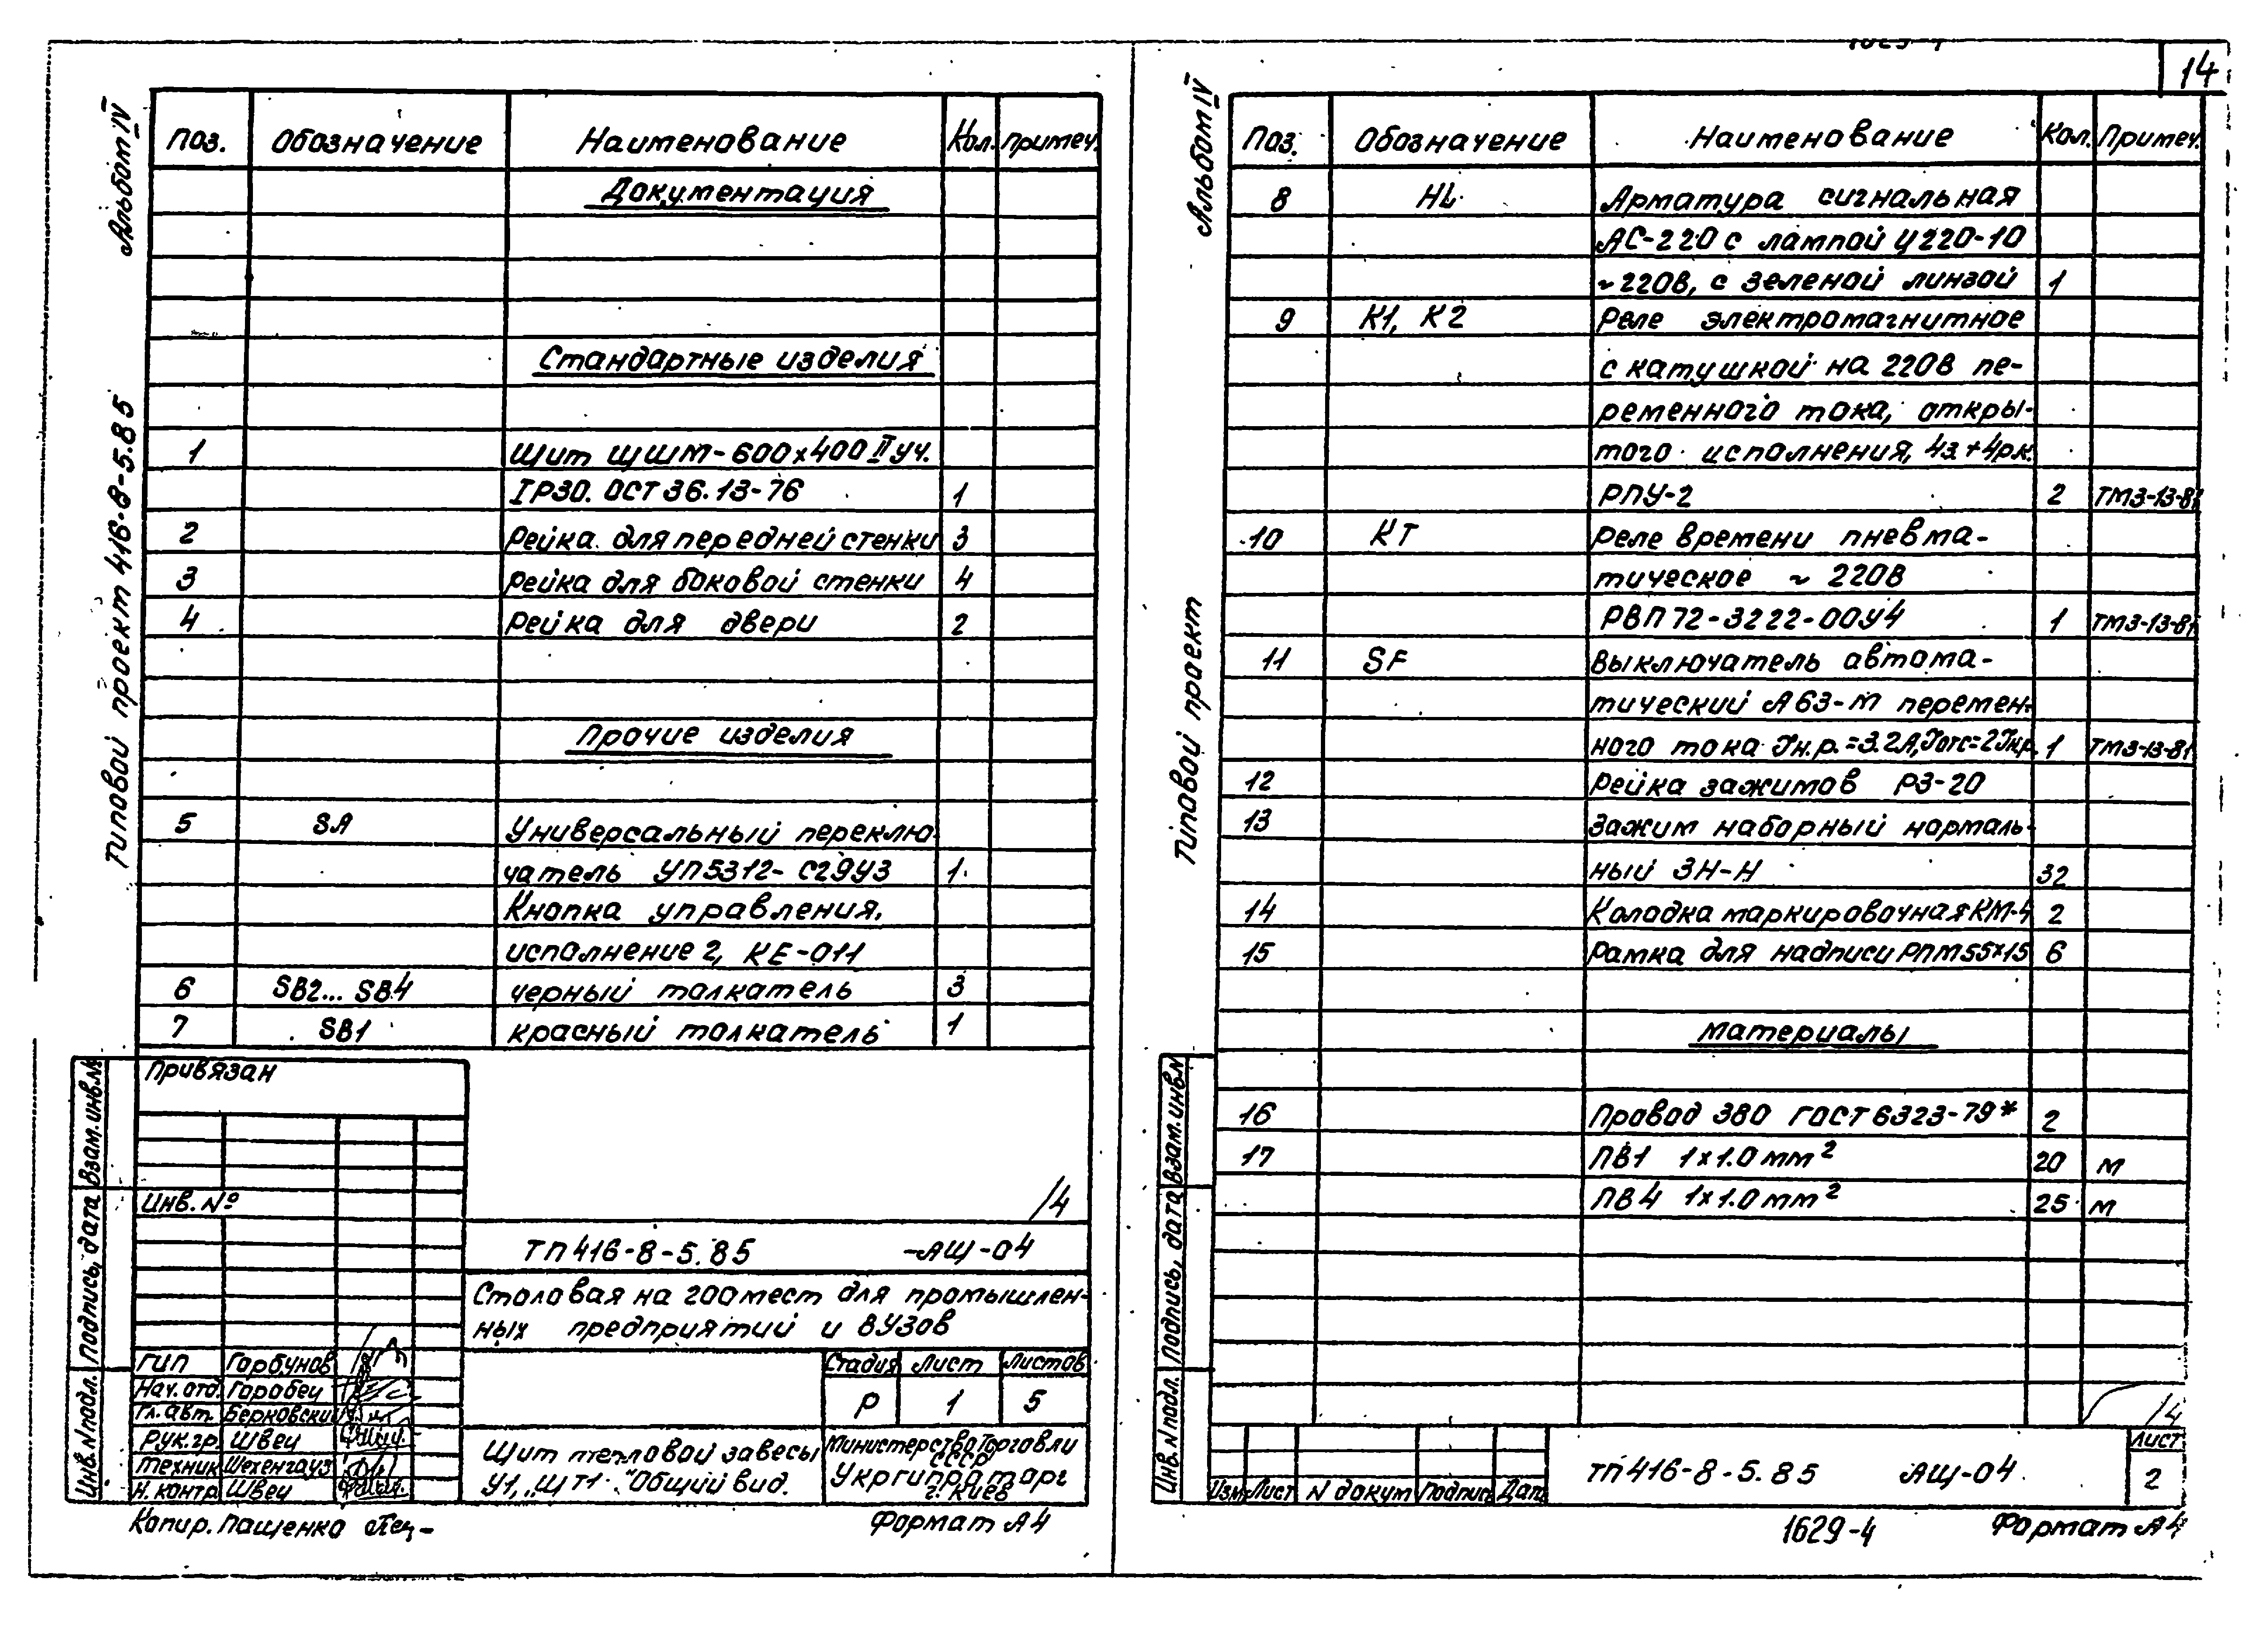 14
Альбом IV
Типовой проект 416-8-5.85
Поз. Обозначение Наименование Кол. Примеч.
Документация
Стандартные изделия
1 Щит ЩШМ-600х400 II уч.
IР30. ОСТ 36.13-76 1
2 Рейка для передней стенки 3
3 Рейка для боковой стенки 4
4 Рейка для двери 2
Прочие изделия
5 SA Универсальный переклю-
чатель УП5312-С29У3 1
Кнопка управления,
исполнение 2, КЕ-011
6 SB2... SB4 черный толкатель 3
7 SB1 красный толкатель 1
Привязан
Инв. №
Взам. инв. №
Подпись, дата
Инв. N подл.
14
ТП 416-8-5.85 -АЩ-04
Столовая на 200 мест для промышлен-
ных предприятий и ВУЗов
ГИП Горбунов
Нач. отд. Горобец
Гл. авт. Берковский
Рук. гр. Швец
Техник Шехенгауз
Н. контр Швец
Стадия Лист Листов
Р 1 5
Щит тепловой завесы
У1, ЩТ1. Общий вид.
Министерство Торговли
СССР
Укргипроторг
г. Киев
Копир. Пащенко
Формат А4
Альбом IV
Типовой проект
Поз. Обозначение Наименование Кол. Примеч.
8 HL Арматура сигнальная
АС-220 с лампой Ц220-10
~220В, с зеленой линзой 1
9 К1, К2 Реле электромагнитное
с катушкой на 220В пе-
ременного тока, откры-
того исполнения, 4з+4рк.
РПУ-2 2 ТМ3-13-81
10 КТ Реле времени пневма-
тическое ~ 220В
РВП72-3222-00У4 1 ТМ3-13-81
11 SF Выключатель автома-
тический А63-М перемен-
ного тока Iн.р.=3.2А, Iотс=2Iн.р. 1 ТМ3-13-81
12 Рейка зажимов РЗ-20
13 Зажим наборный нормаль-
ный ЗН-Н 32
14 Колодка маркировочная КМ-4 2
15 Рамка для надписи РПМ55х15 6
Материалы
16 Провод 380 ГОСТ 6323-79* 2
17 ПВ1 1х1.0 мм² 20 м
ПВ4 1х1.0 мм² 25 м
Взам. инв. N
Подпись, дата
Инв. N подл.
14
Изм Лист N докум Подпись Дата
ТП 416-8-5.85 АЩ-04
Лист
2
1629-4 Формат А4